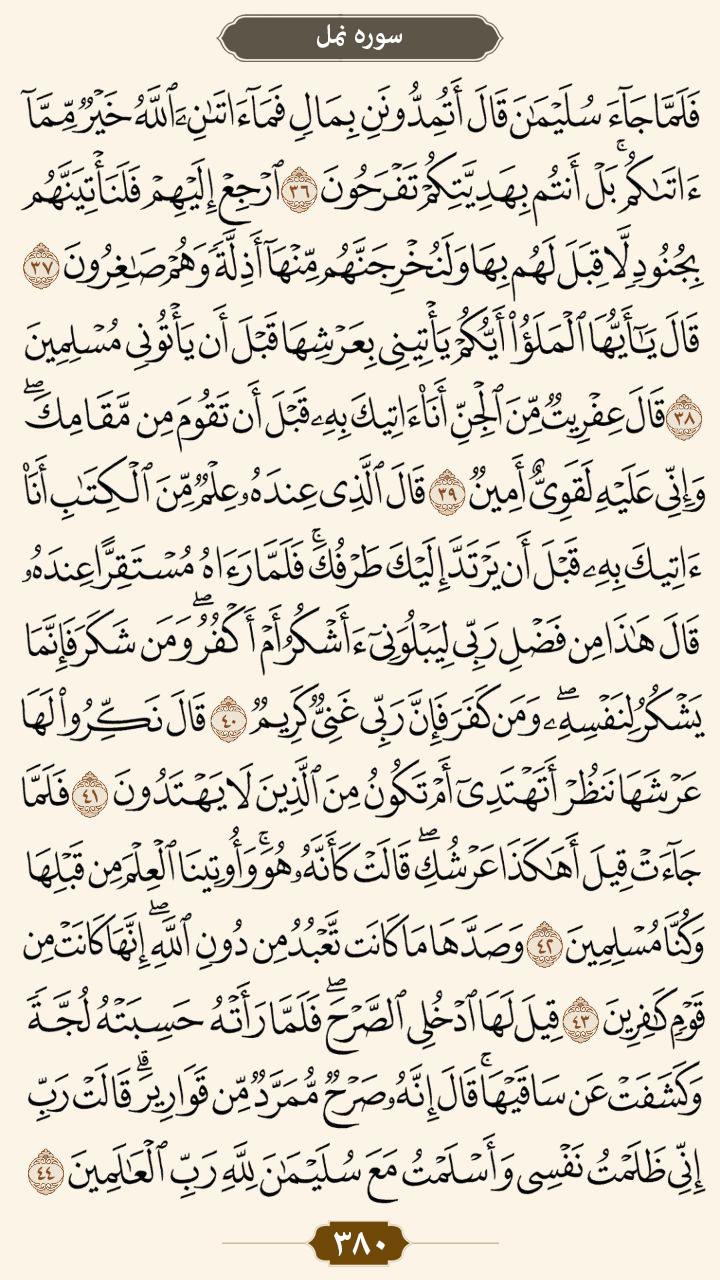 سوره نمل
فَلَمَّا جَآءَ سُلَيْمَٰنَ قَالَ أَتُمِدُّونَنِ بِمَالٍ فَمَآ ءَاتَىٰنِۦَ ٱللَّهُ خَيْرٌ مِّمَّآ
ءَاتَىٰكُم ۚ بَلْ أَنتُم بِهَدِيَّتِكُمْ تَفْرَحُونَ ٣٦ ٱرْجِعْ إِلَيْهِمْ فَلَنَأْتِيَنَّهُم
بِجُنُودٍ لَّا قِبَلَ لَهُم بِهَا وَلَنُخْرِجَنَّهُم مِّنْهَآ أَذِلَّةً وَهُمْ صَٰغِرُونَ ٣٧
قَالَ يَٰٓأَيُّهَا ٱلْمَلَؤُا۟ أَيُّكُمْ يَأْتِينِى بِعَرْشِهَا قَبْلَ أَن يَأْتُونِى مُسْلِمِينَ
٣٨ قَالَ عِفْرِيتٌ مِّنَ ٱلْجِنِّ أَنَا۠ ءَاتِيكَ بِهِۦ قَبْلَ أَن تَقُومَ مِن مَّقَامِكَ ۖ
وَإِنِّى عَلَيْهِ لَقَوِىٌّ أَمِينٌ ٣٩ قَالَ ٱلَّذِى عِندَهُۥ عِلْمٌ مِّنَ ٱلْكِتَٰبِ أَنَا۠
ءَاتِيكَ بِهِۦ قَبْلَ أَن يَرْتَدَّ إِلَيْكَ طَرْفُكَ ۚ فَلَمَّا رَءَاهُ مُسْتَقِرًّا عِندَهُۥ
قَالَ هَٰذَا مِن فَضْلِ رَبِّى لِيَبْلُوَنِىٓ ءَأَشْكُرُ أَمْ أَكْفُرُ ۖ وَمَن شَكَرَ فَإِنَّمَا
يَشْكُرُ لِنَفْسِهِۦ ۖ وَمَن كَفَرَ فَإِنَّ رَبِّى غَنِىٌّ كَرِيمٌ ٤٠ قَالَ نَكِّرُوا۟ لَهَا
عَرْشَهَا نَنظُرْ أَتَهْتَدِىٓ أَمْ تَكُونُ مِنَ ٱلَّذِينَ لَا يَهْتَدُونَ ٤١ فَلَمَّا
جَآءَتْ قِيلَ أَهَٰكَذَا عَرْشُكِ ۖ قَالَتْ كَأَنَّهُۥ هُوَ ۚ وَأُوتِينَا ٱلْعِلْمَ مِن قَبْلِهَا
وَكُنَّا مُسْلِمِينَ ٤٢ وَصَدَّهَا مَا كَانَت تَّعْبُدُ مِن دُونِ ٱللَّهِ ۖ إِنَّهَا كَانَتْ مِن
قَوْمٍ كَٰفِرِينَ ٤٣ قِيلَ لَهَا ٱدْخُلِى ٱلصَّرْحَ ۖ فَلَمَّا رَأَتْهُ حَسِبَتْهُ لُجَّةً
وَكَشَفَتْ عَن سَاقَيْهَا ۚ قَالَ إِنَّهُۥ صَرْحٌ مُّمَرَّدٌ مِّن قَوَارِيرَ ۗ قَالَتْ رَبِّ
إِنِّى ظَلَمْتُ نَفْسِى وَأَسْلَمْتُ مَعَ سُلَيْمَٰنَ لِلَّهِ رَبِّ ٱلْعَٰلَمِينَ ٤٤
٣٨٠